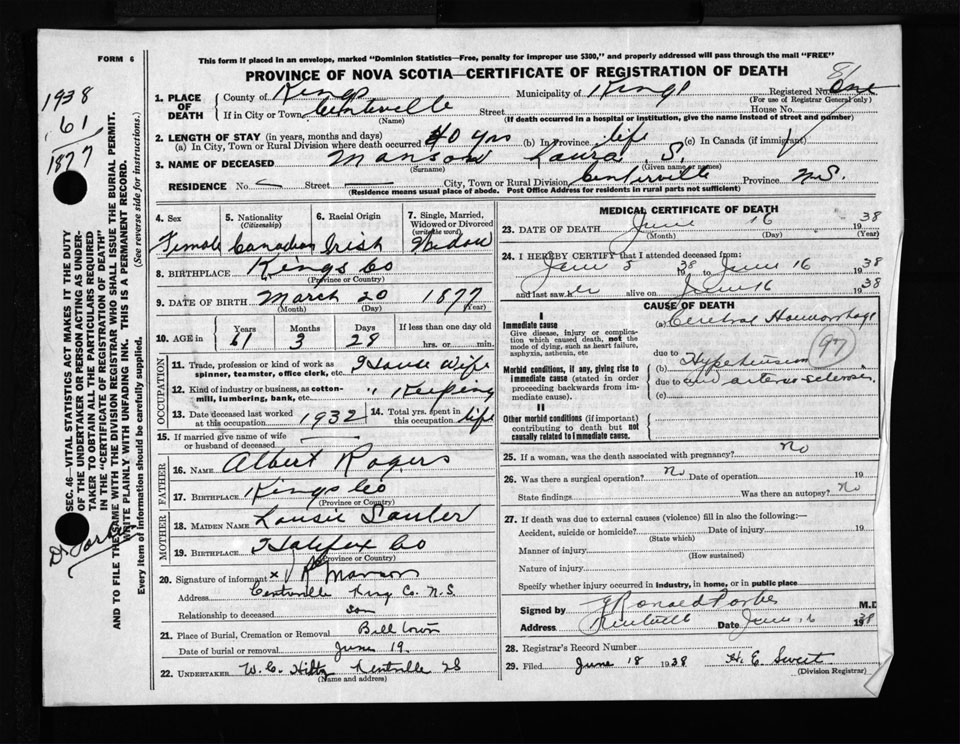 FORM 6
This form if placed in an envelope, marked "Dominion Statistics—Free, penalty for improper use $300," and properly addressed will pass through the mail "FREE"
PROVINCE OF NOVA SCOTIA—CERTIFICATE OF REGISTRATION OF DEATH
1938
61
1877
SEC. 46—VITAL STATISTICS ACT MAKES IT THE DUTY
OF THE UNDERTAKER OR PERSON ACTING AS UNDER-
TAKER TO OBTAIN ALL THE PARTICULARS REQUIRED
IN THE "CERTIFICATE OF REGISTRATION OF DEATH"
AND TO FILE THE SAME WITH THE DIVISION REGISTRAR WHO SHALL ISSUE THE BURIAL PERMIT.
WRITE PLAINLY WITH UNFADING INK. THIS IS A PERMANENT RECORD.
Every item of information should be carefully supplied. (See reverse side for instructions.)
1. PLACE OF DEATH
County of Kings Municipality of Kings Registered No. One
81
(For use of Registrar General only)
If in City or Town Centreville Street House No.
(Name) (If death occurred in a hospital or institution, give the name instead of street and number)
2. LENGTH OF STAY (in years, months and days)
(a) In City, Town or Rural Division where death occurred 40 yrs (b) In Province life (c) In Canada (if immigrant)
3. NAME OF DECEASED Manson Laura S.
(Surname) (Given name or names)
RESIDENCE No. Street City, Town or Rural Division Centerville Province N.S.
(Residence means usual place of abode. Post Office Address for residents in rural parts not sufficient)
4. Sex 5. Nationality (Citizenship) 6. Racial Origin 7. Single, Married, Widowed or Divorced (write the word)
Female Canadian Irish Widow
8. BIRTHPLACE Kings Co
(Province or Country)
9. DATE OF BIRTH March 20 1877
(Month) (Day) (Year)
10. AGE in Years Months Days If less than one day old
61 3 28 hrs. or min.
OCCUPATION
11. Trade, profession or kind of work as spinner, teamster, office clerk, etc. House Wife
12. Kind of industry or business, as cotton-mill, lumbering, bank, etc. " Keeping
13. Date deceased last worked at this occupation 1932 14. Total yrs. spent in this occupation life
15. If married give name of wife or husband of deceased
FATHER
16. NAME Albert Rogers
17. BIRTHPLACE Kings Co
(Province or Country)
MOTHER
18. MAIDEN NAME
19. BIRTHPLACE Halifax Co
(Province or Country)
20. Signature of informant x Manson
Address Centreville King Co. N.S.
Relationship to deceased son
21. Place of Burial, Cremation or Removal Bill town
Date of burial or removal June 19
22. UNDERTAKER W. C. Hiltz Kentville NS
(Name and address)
MEDICAL CERTIFICATE OF DEATH
23. DATE OF DEATH June 16 1938
(Month) (Day) (Year)
24. I HEREBY CERTIFY that I attended deceased from:
June 5 1938 to June 16 1938
and last saw her alive on June 16 1938
CAUSE OF DEATH
I
Immediate cause
Give disease, injury or complication which caused death, not the mode of dying, such as heart failure, asphyxia, asthenia, etc
(a) Cerebral Haemorrhage
due to
97
Morbid conditions, if any, giving rise to immediate cause (stated in order proceeding backwards from immediate cause).
(b) Hypertension
due to and arterio sclerosis
(c)
II
Other morbid conditions (if important) contributing to death but not causally related to immediate cause.
25. If a woman, was the death associated with pregnancy? No
26. Was there a surgical operation? No Date of operation 19
State findings Was there an autopsy? No
27. If death was due to external causes (violence) fill in also the following:—
Accident, suicide or homicide? Date of injury 19
(State which)
Manner of injury
(How sustained)
Nature of injury
Specify whether injury occurred in industry, in home, or in public place
Signed by Ronald Forbes M.D
Address Kentville Date June 16 1938
28. Registrar's Record Number
29. Filed June 18 1938 H. E. Sweet
(Division Registrar)